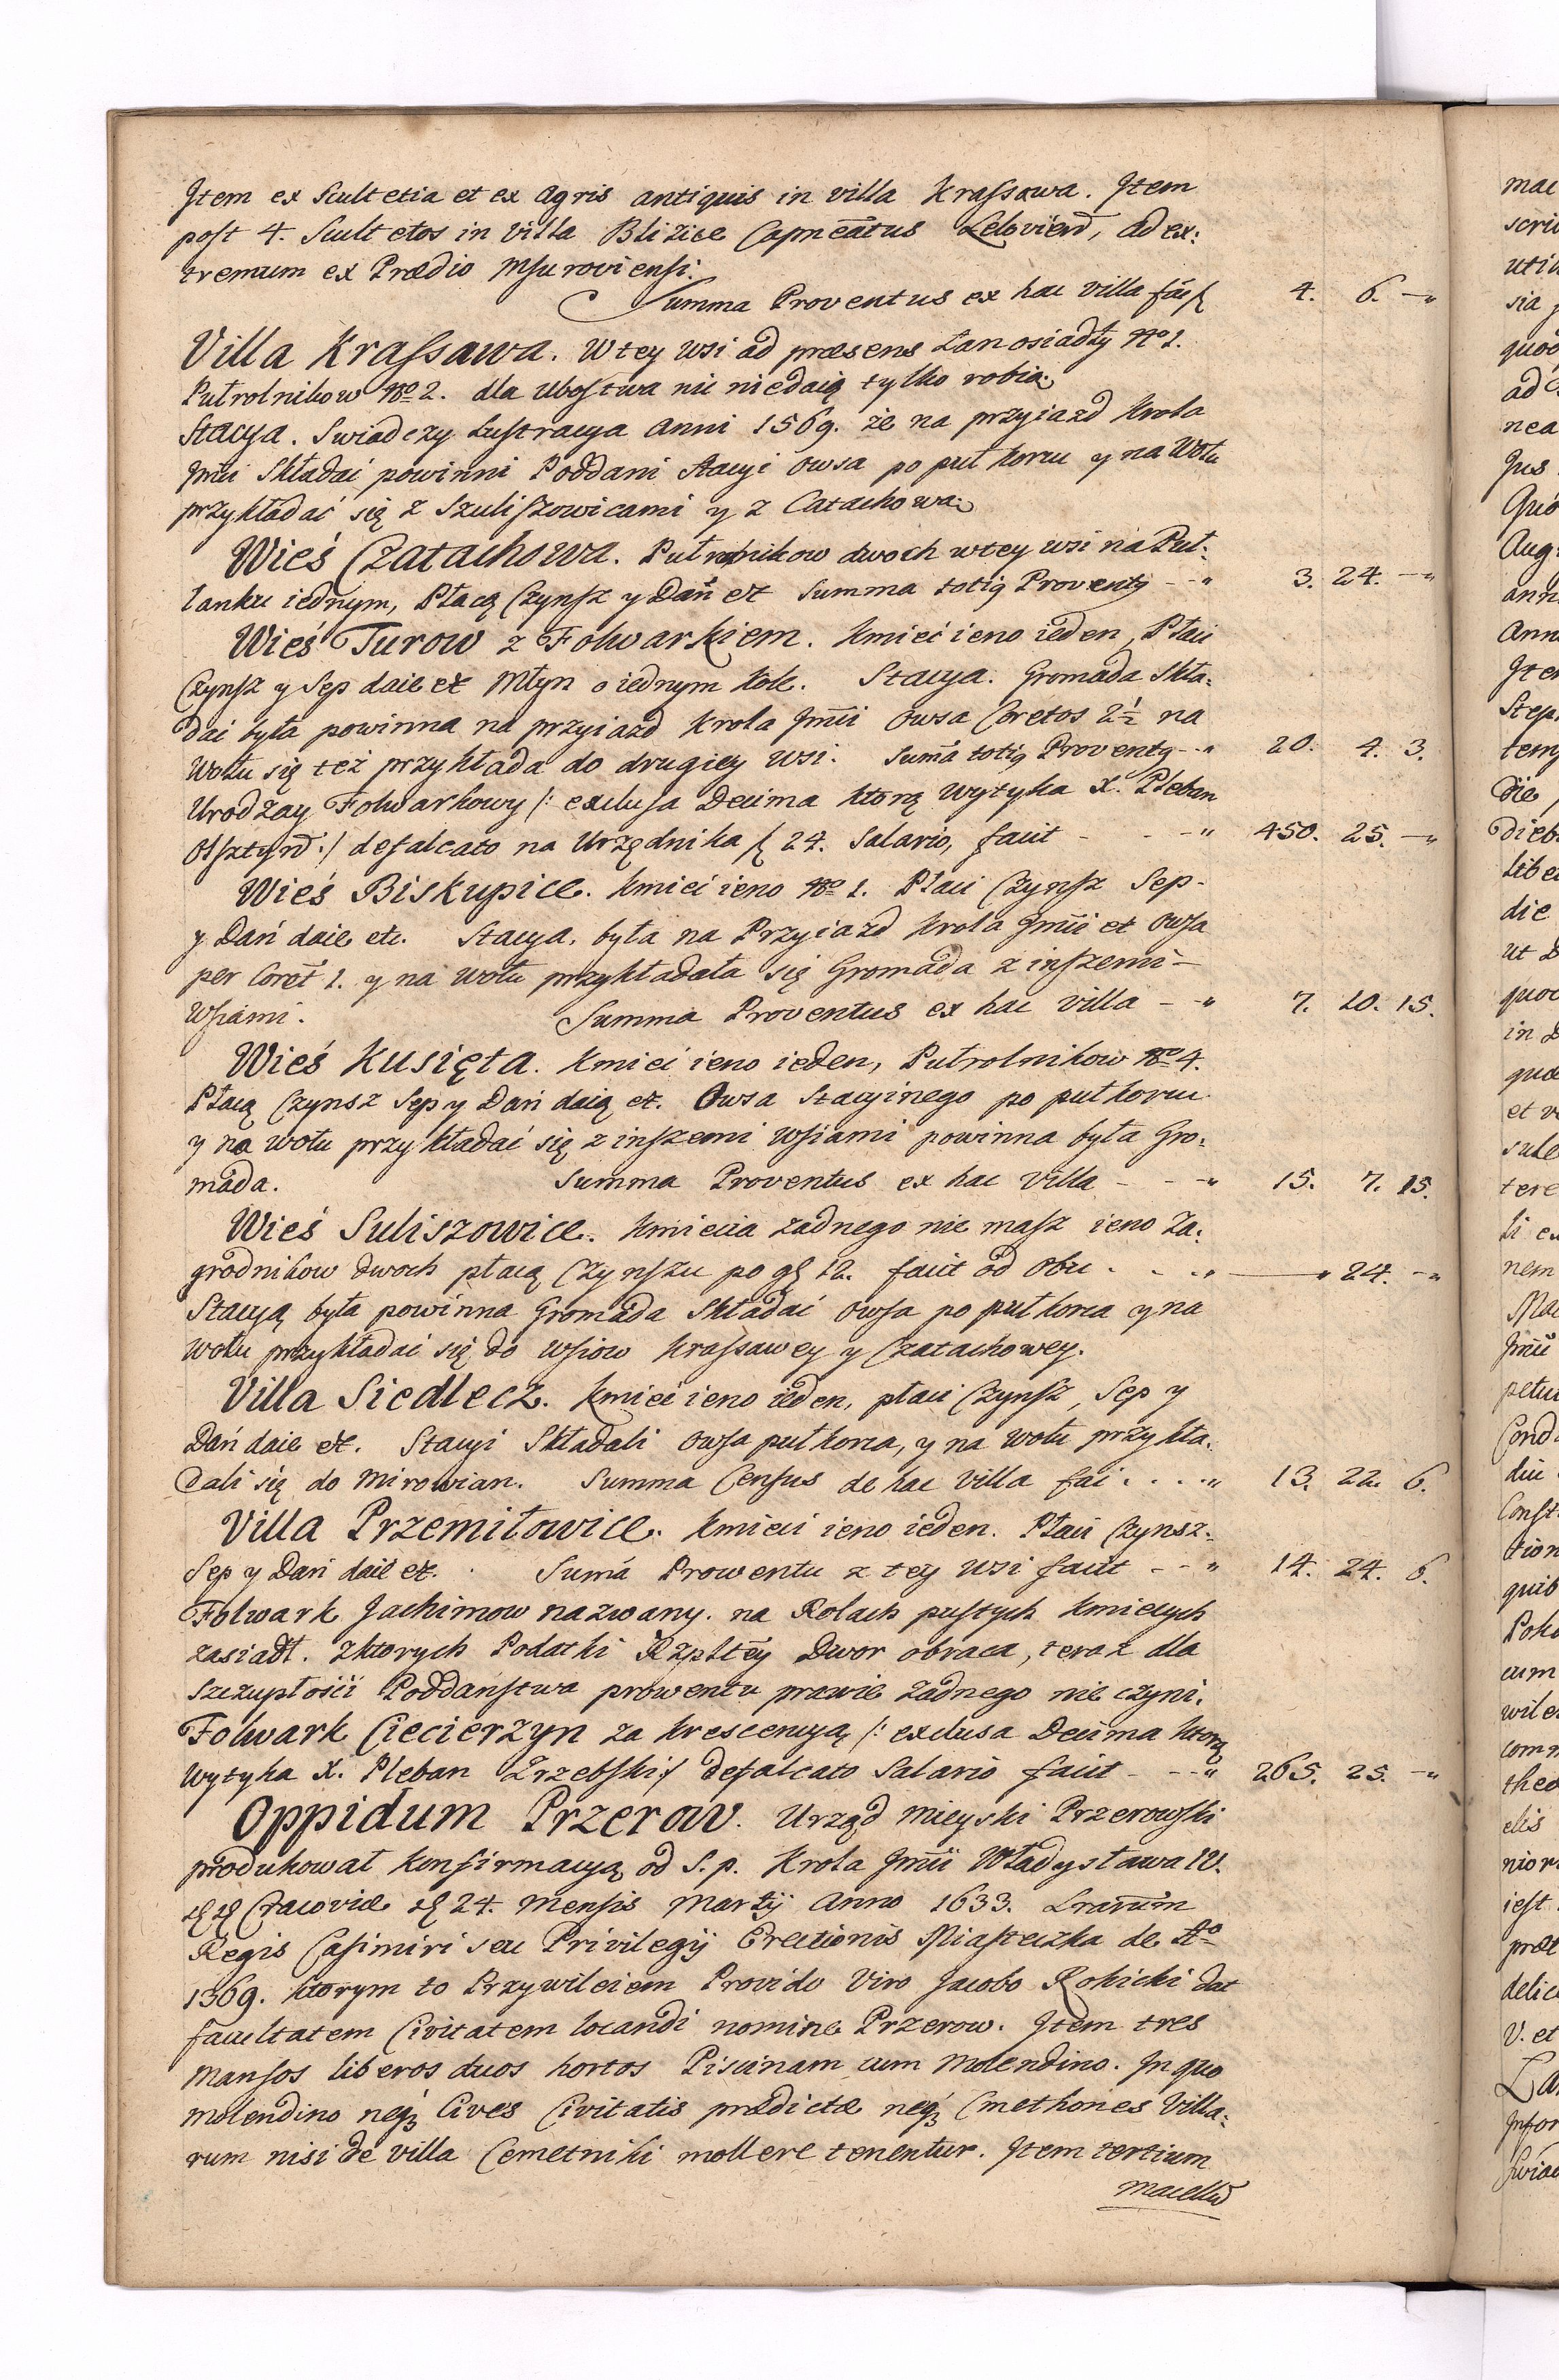 Item ex Scultetia et ex Agris antiquis in villa Krassawa. Item
post 4. Scultetos in Villa Blizice Capneatus Lelovien, ad ex:
tremum ex Prædio Msuroviensi.
Summa Proventus ex hac villa fac f 4. 6. –„
Villa Krassawa. W tey wsi ad præsens Łan osiadły No 1.
Pułrolnikow No 2. dla ubostwa nic niedaią tylko robią.
Stacya. Swiadczy Lustracya Anni 1569. że na przyiazd Krola
Jmci składać powinni Poddani stacyi owsa po puł korcu y na Wołu
przykładać się z Szuliszowicami y z Catachowa.
Wieś Czatachowa. Pułrolnikow dwoch w tey wsi na Puł:
lanku iednym, Płacą Czynsz y Dań etc Summa totig Proventg - - „ 3. 24. –„
Wieś Turow z Folwarkiem. Kmieć ieno ieden, Płaci
Czynsz y Sep daie etc Młyn o iednym kole. Stacya. Gromada skła:
dać była powinna na przyiazd Krola Jmci Owsa Coretos 2½ na
Wołu się też przykłada do drugiey wsi. Suma totig Proventg - - „ 20. 4. 3.
Urodzay Folwarkowy /: exclusa Decima ktorą wytyka X. Pleban
Olsztyn :/ defalcato na Urzędnika f 24. Salario, facit - - - „ 450. 25. –„
Wieś Biskupice. Kmieć ieno No 1. Płaci Czynsz Sep-
y Dań daie etc. Stacya, była na Przyiazd Krola Jmci et Owsa
per Coret 1. y na wołu przykładała się Gromada z inszemi –
Wsiami. Summa Proventus ex hac Villa - - „ 7. 20. 15.
Wieś Kusięta. Kmieć ieno ieden, Pułrolnikow No 4.
Płacą Czynsz Sep y Dań daią etc. Owsa Stacyinego po puł korcu
y na wołu przykładać się z inszemi Wsiami powinna była Gro:
mada. Summa Proventus ex hac Villa - - - „ 15. 7. 15.
Wieś Suliszowice. Kmiecia żadnego nie masz ieno Za:
grodnikow dwoch płacą Czynszu po gg 12. facit od obu - - - „ ——„ 24. –„
Stacyą była powinna Gromada składać owsa po puł korca y na
wołu przykładać się do Wsiow Krassawey y Czatachowey.
Villa Siedlecz. Kmieć ieno ieden, płaci Czynsz, Sep y
Dań daie etc. Stacyi składali owsa puł korca, y na wołu przykła:
dali się do Mirowian. Summa Census de hac Villa fac . . . . „ 13. 22. 6.
Villa Przemiłowice. Kmieć ieno ieden. Płaci Czynsz.
Sep y Dań daie etc. Suma Prowentu z tey wsi facit - - „ 14. 24. 6.
Folwark Jachimow nazwany. na Rolach pustych Kmiecych
zasiadł. Z ktorych Podatki Rzpltey Dwor obraca, teraz dla
szczupłości Poddaństwa prowentu prawie żadnego nie czyni.
Folwark Ciecierzyn za krescencyą /: exclusa Decima ktorą
wytyka X. Pleban Zrzebski :/ defalcato Salario facit - - - „ 265. 25. –„
Oppidum Przerow. Urząd Mieyski Przerowski
produkował konfirmacyą od S. p. Krola Jmci Władysława IV.
Cracoviæ 24. Mensis Martij Anno 1633. Lrarum
Regis Casimiri seu Privilegij Erectionis Miasteczka de Ao
1369. ktorym to Przywileiem Provido Viro Jacobo Rokicki dat
facultatem Civitatem locandi nomine Przerow. Item tres
mansos liberos duos hortos Piscinam cum Molendino. In quo
molendino neqz Cives Civitatis prædictæ neqz Cmethones Villa:
rum nisi de villa Cemetniki mollere tenentur. Item tertium
macellu